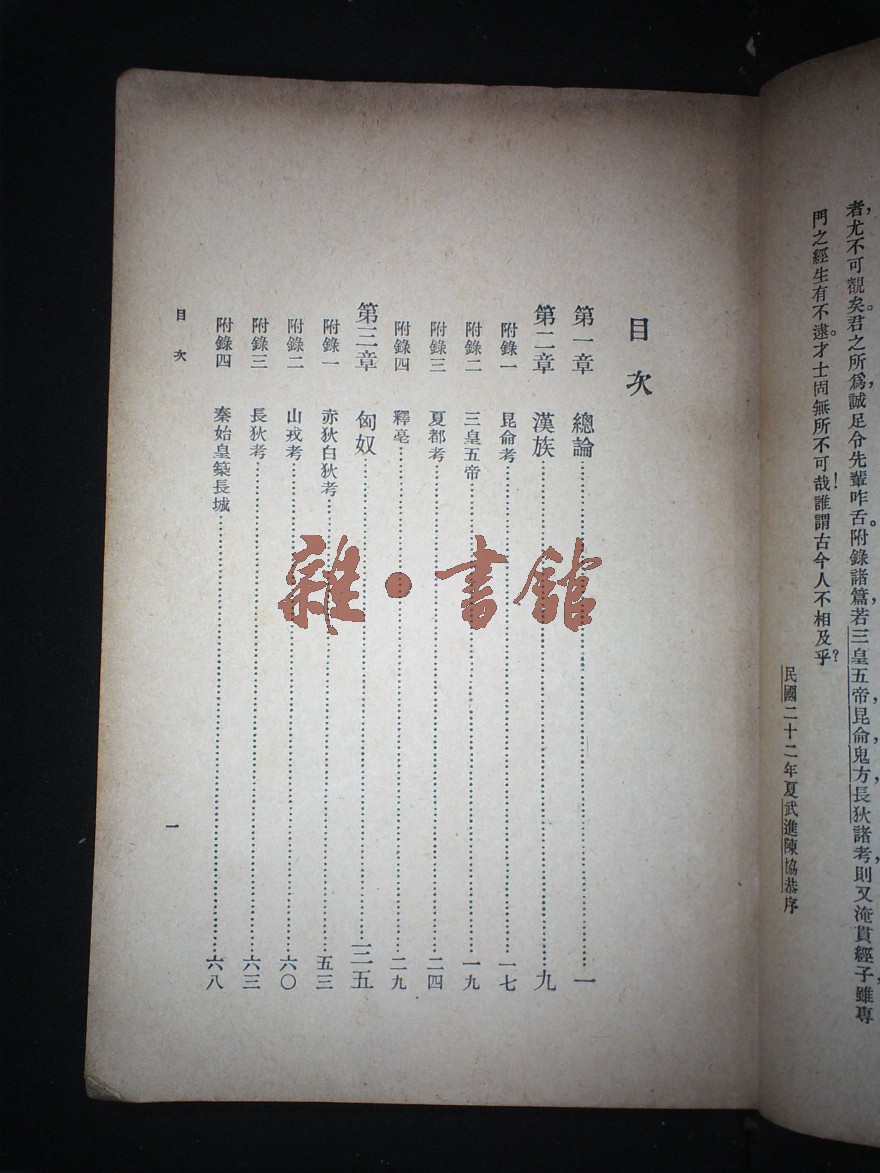 者,尤不可覩矣。君之所爲,誠足令先輩咋舌。附錄諸篇,若三皇五帝,昆侖,鬼方,長狄諸考,則又淹貫經子,雖專
門之經生有不逮。才士固無所不可哉!誰謂古今人不相及乎?
民國二十二年夏武進陳協恭序
目次
第一章 總論……一
第二章 漢族……九
附錄一 昆侖考……一七
附錄二 三皇五帝……一九
附錄三 夏都考……二四
附錄四 釋亳……二九
第三章 匈奴……三五
附錄一 赤狄白狄考……五三
附錄二 山戎考……六〇
附錄三 長狄考……六三
附錄四 秦始皇築長城……六八
目次
一
雜·書館